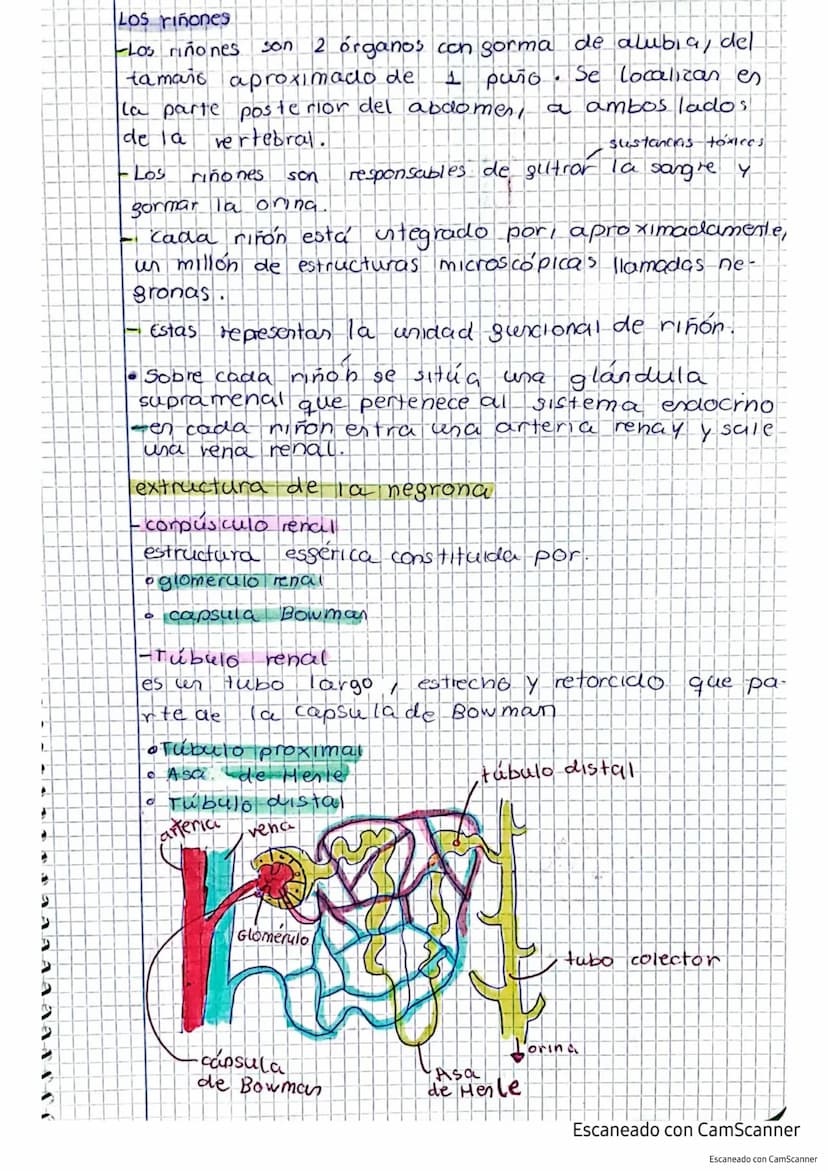 Los riñones
-Los riñones son 2 órganos con gorma de alubia, del
tamaño aproximado de 1 puño. Se localizan en
la parte posterior del abdomen, a ambos lados
de la vertebral.
sustancias tóxicas
- Los riñones son responsables de giltrar la sangre y
gormar la orina.
- cada riñón está integrado por, aproximadamente,
un millón de estructuras microscópicas llamadas ne-
gronas.
- Estas representan la unidad guncional de riñón.
• Sobre cada riñón se sitúa una glándula
suprarrenal que pertenece al sistema endocrino
-en cada riñon entra una arteria renay y sale
una vena renal.
extructura de la negrona
-corpúsculo renal
estructura esgérica constituida por.
• glomerulo renal
• capsula Bowman
-Túbulo renal
es un tubo largo, estrecho y retorcido que pa-
rte de la capsula de Bowman
• Túbulo proximal
• Asa de Henle
• Túbulo distal
túbulo distal
arteria
vena
Glomérulo
tubo colector
orina
cápsula
de Bowman
Asa
de Henle
Escaneado con CamScanner
Escaneado con CamScanner